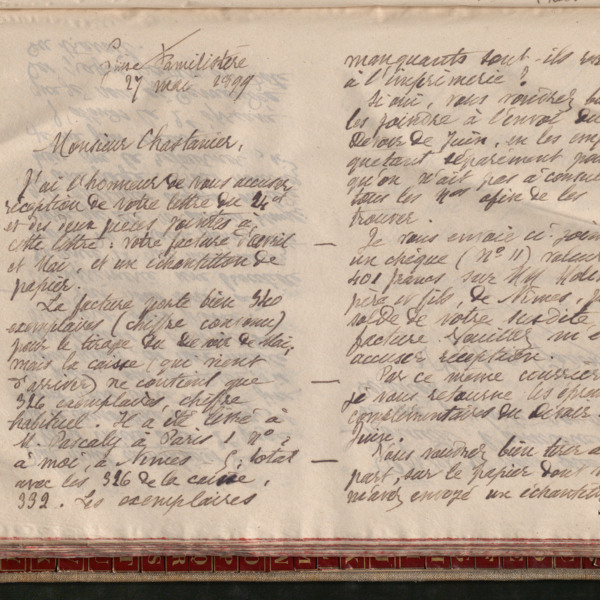 Guise Familistère
27 mai 1899
Monsieur Chastanier,
J'ai l'honneur de vous accuser
réception de votre lettre du 24 ct
et des deux pièces jointes à
cette lettre : votre facture d'avril
et Mai, et un échantillon de
papier.
La facture porte bien 340
exemplaires (chiffre convenu)
pour le tirage du Devoir de Mai,
mais la caisse (qui vient
d'arriver) ne contient que
326 exemplaires, chiffre
habituel. Il a été livré à
M. Pascaly à Paris 1 no,
à moi, à Nîmes 5; total
avec les 326 de la caisse,
332. Les exemplaires
manquants sont-ils
à l'imprimerie ?
Si oui, vous voudrez
les joindre à l'envoi du
Devoir de Juin, en les
quetant séparément
qu'on n'ait pas à
tous les nos afin de les
trouver.
Je vous envoie ci-
un chèque (No 11)
401 francs sur MM
père et fils, de Nîmes,
solde de votre susdite
facture. Veuillez m'en
accuser réception.
Par ce même courrier
je vous retourne les
complémentaires du Devoir
Juin.
Vous voudrez bien tirer à
part, sur le papier dont
m'avez envoyé un